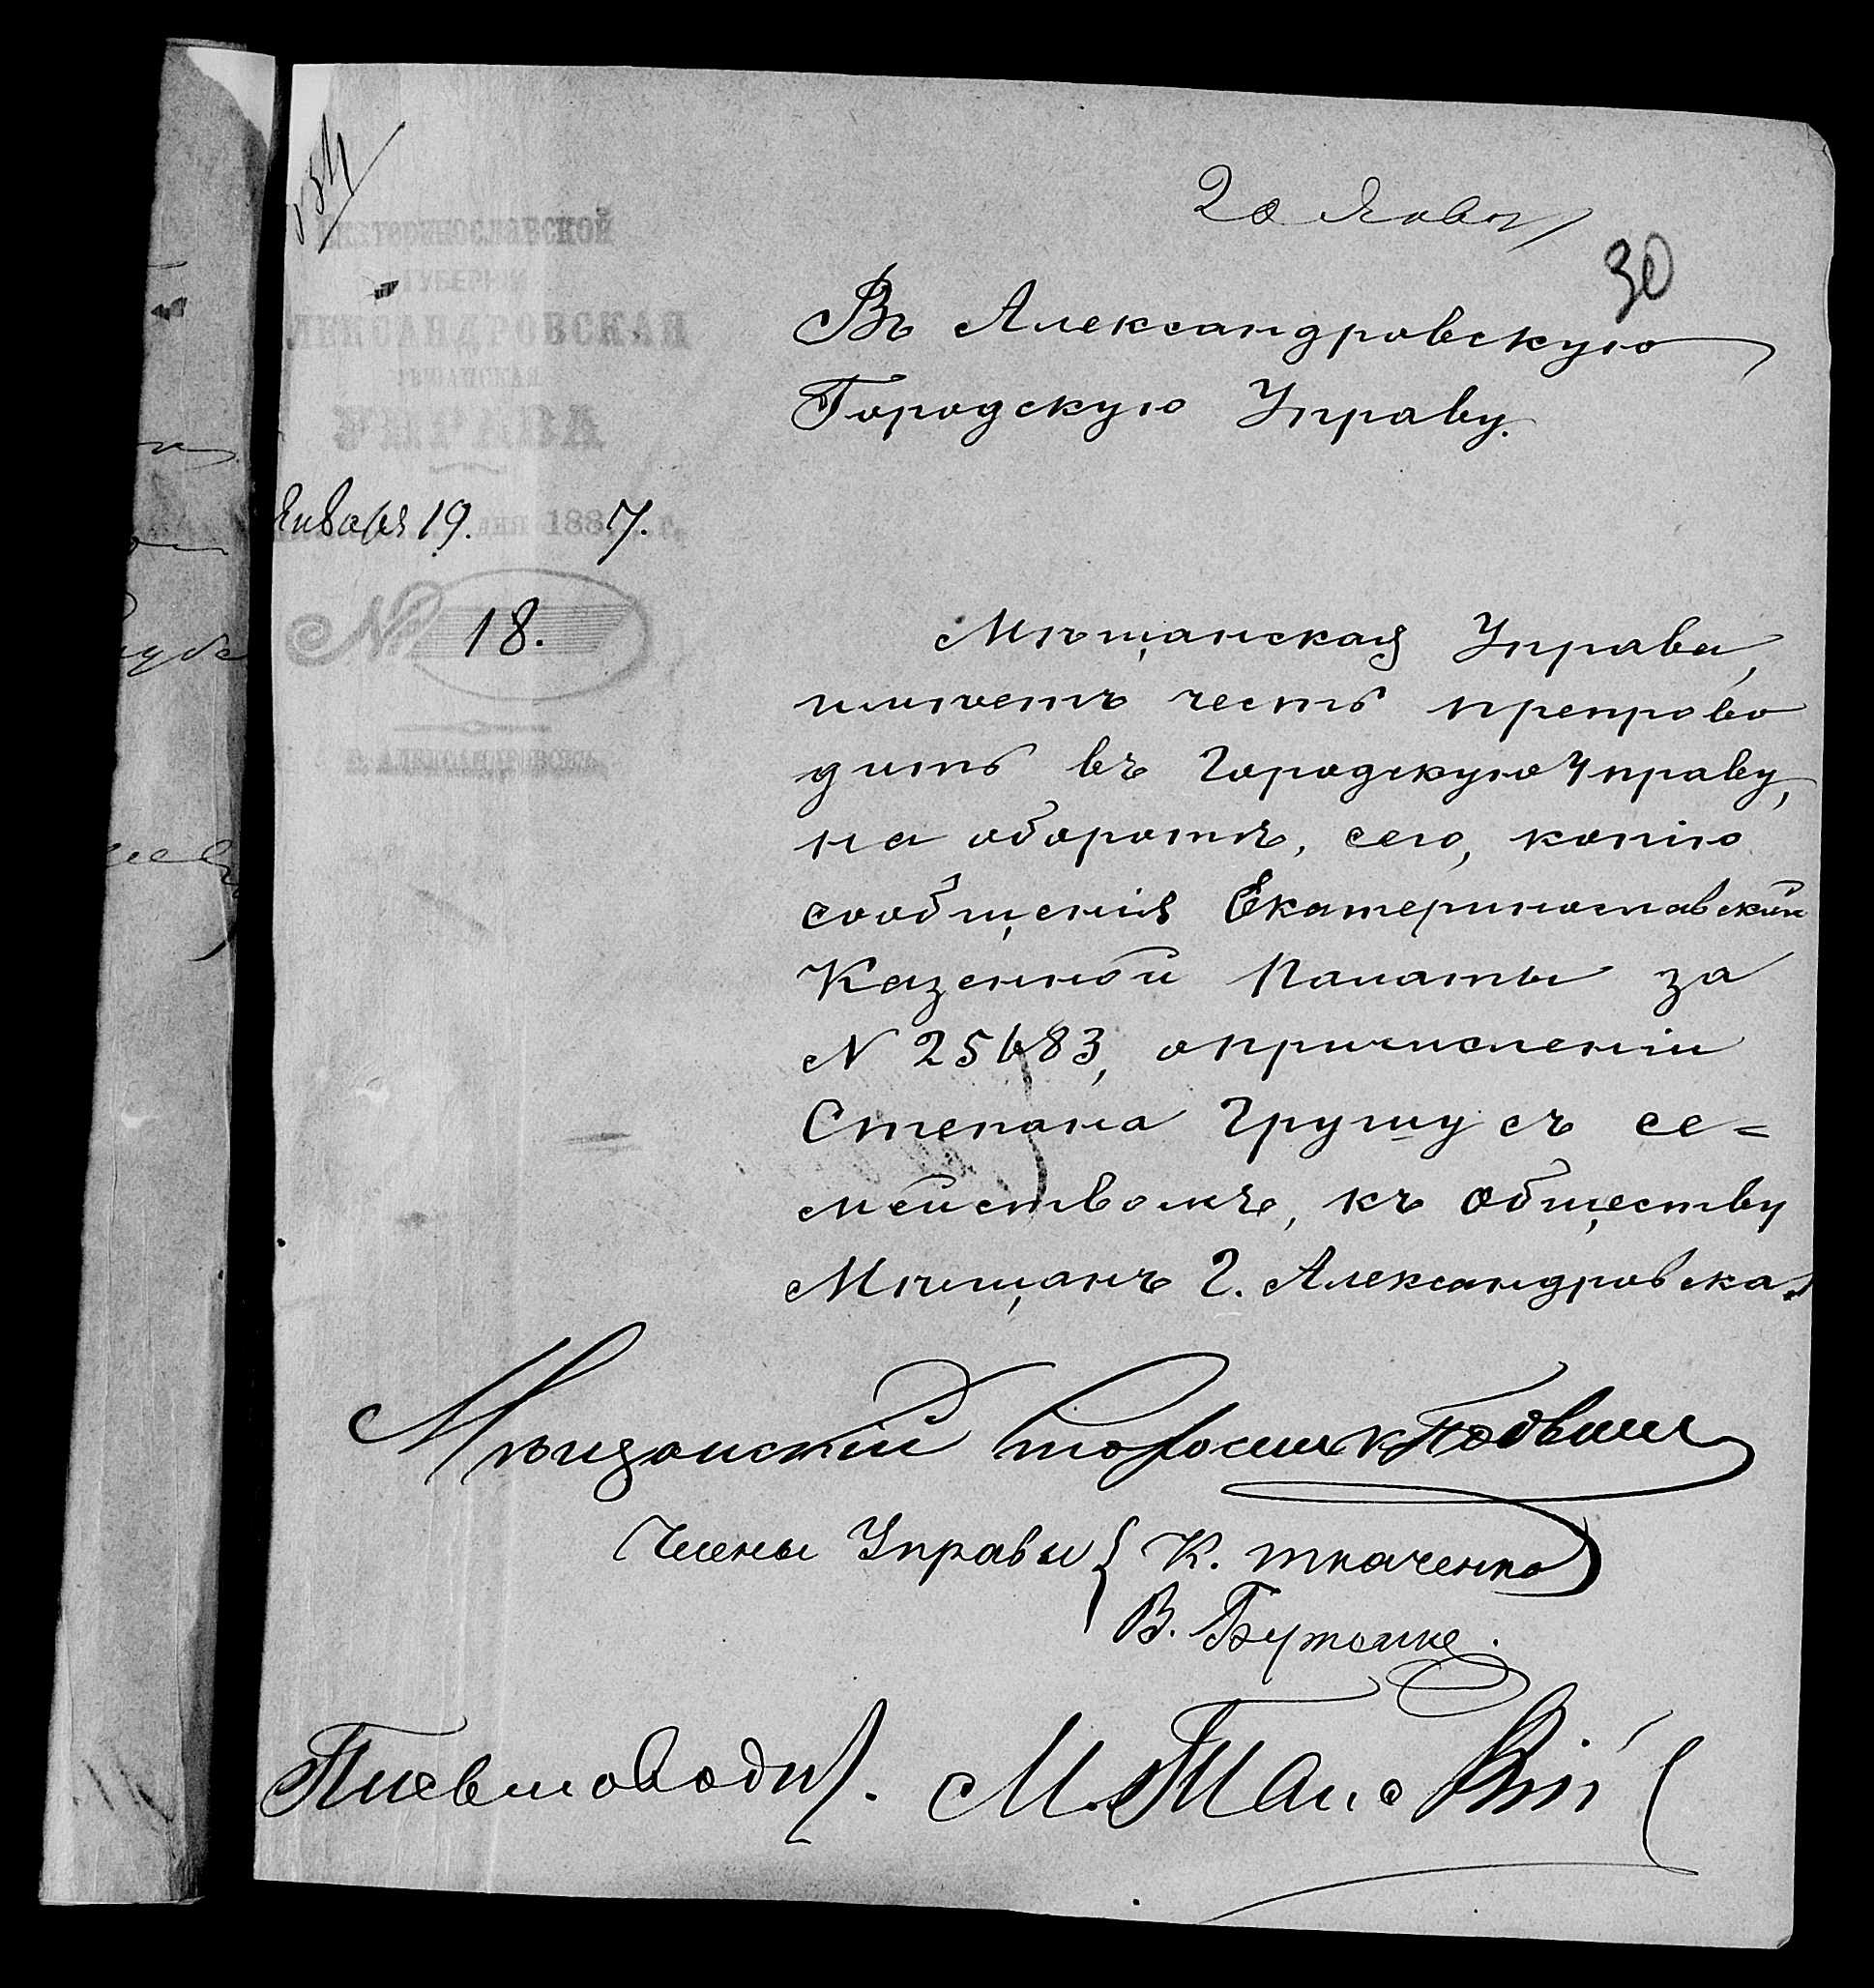 20 Янвоу
30
Екатеринославской
ГУБЕРНІИ
АЛЕКСАНДРОВСКАЯ
МѢЩАНСКАЯ
УПРАВА
Января 19. дня 1887. г.
№ 18.
г. АЛЕКСАНДРОВСКЪ
Въ Александровскую
Городскую Управу.
Мѣщанская Управа,
имѣетъ честь препрово
дить въ Городскую Управу,
на оборотѣ, сего, копію
сообщенія Екатеринославской
Казенной Палаты за
N 25683, о причисленіи
Степана Грушу съ се=
мействомъ, къ обществу
Мѣщанъ г. Александровска.
Мѣщанскій Староста
Члены Управы { К. Ткаченко
В. Бутенко.
Письмовод.